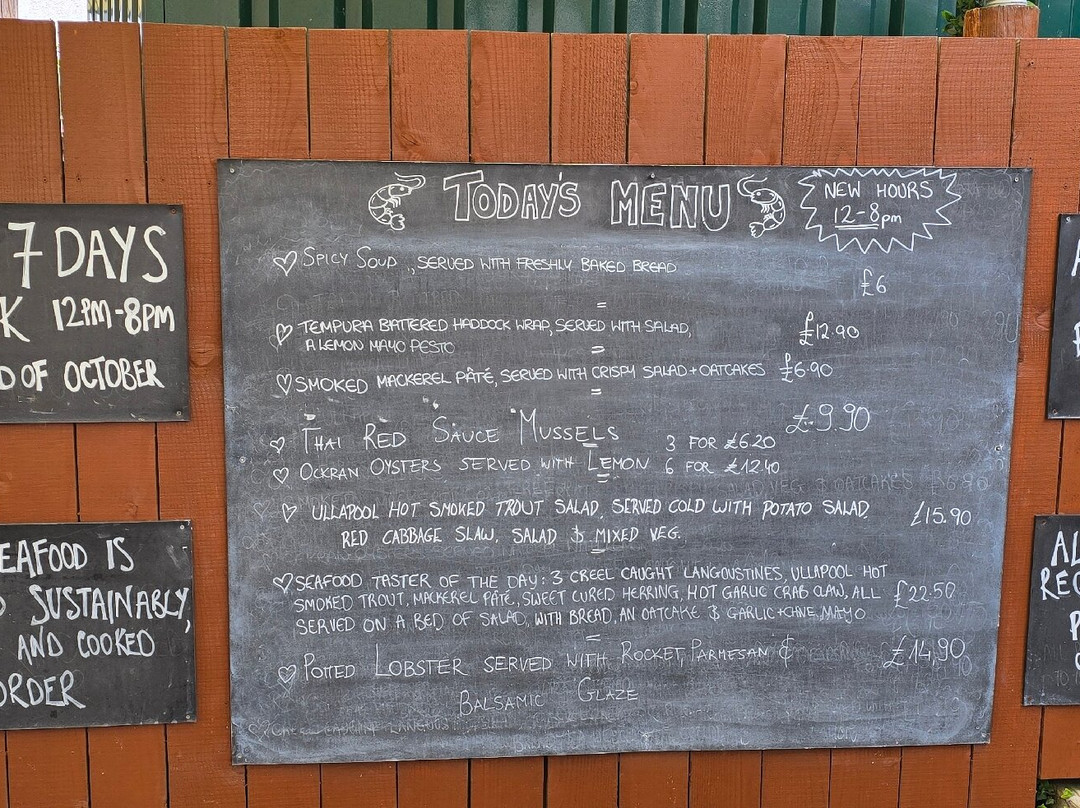 TODAY'S MENU
NEW HOURS
12-8pm
SPICY SOUP, SERVED WITH FRESHLY BAKED BREAD
£6
TEMPURA BATTERED HADDOCK WRAP, SERVED WITH SALAD,
£12.90
A LEMON MAYO PESTO
SMOKED MACKEREL PÂTÉ, SERVED WITH CRISPY SALAD + OATCAKES £6.90
THAI RED SAUCE MUSSELS
£9.90
OCKRAN OYSTERS SERVED WITH LEMON
3 FOR £6.20
6 FOR £12.40
ULLAPOOL HOT SMOKED TROUT SALAD, SERVED COLD WITH POTATO SALAD,
£15.90
RED CABBAGE SLAW, SALAD & MIXED VEG.
SEAFOOD TASTER OF THE DAY: 3 CREEL CAUGHT LANGOUSTINES, ULLAPOOL HOT
SMOKED TROUT, MACKEREL PÂTÉ, SWEET CURED HERRING, HOT GARLIC CRAB CLAW, ALL £22.50
SERVED ON A BED OF SALAD, WITH BREAD, AN OATCAKE & GARLIC + CHIVE MAYO
POTTED LOBSTER SERVED WITH ROCKET, PARMESAN &
£14,90
BALSAMIC GLAZE
7 DAYS
K 12PM-8PM
D OF OCTOBER
EAFOOD IS
SUSTAINABLY,
AND COOKED
ORDER
AL
REC